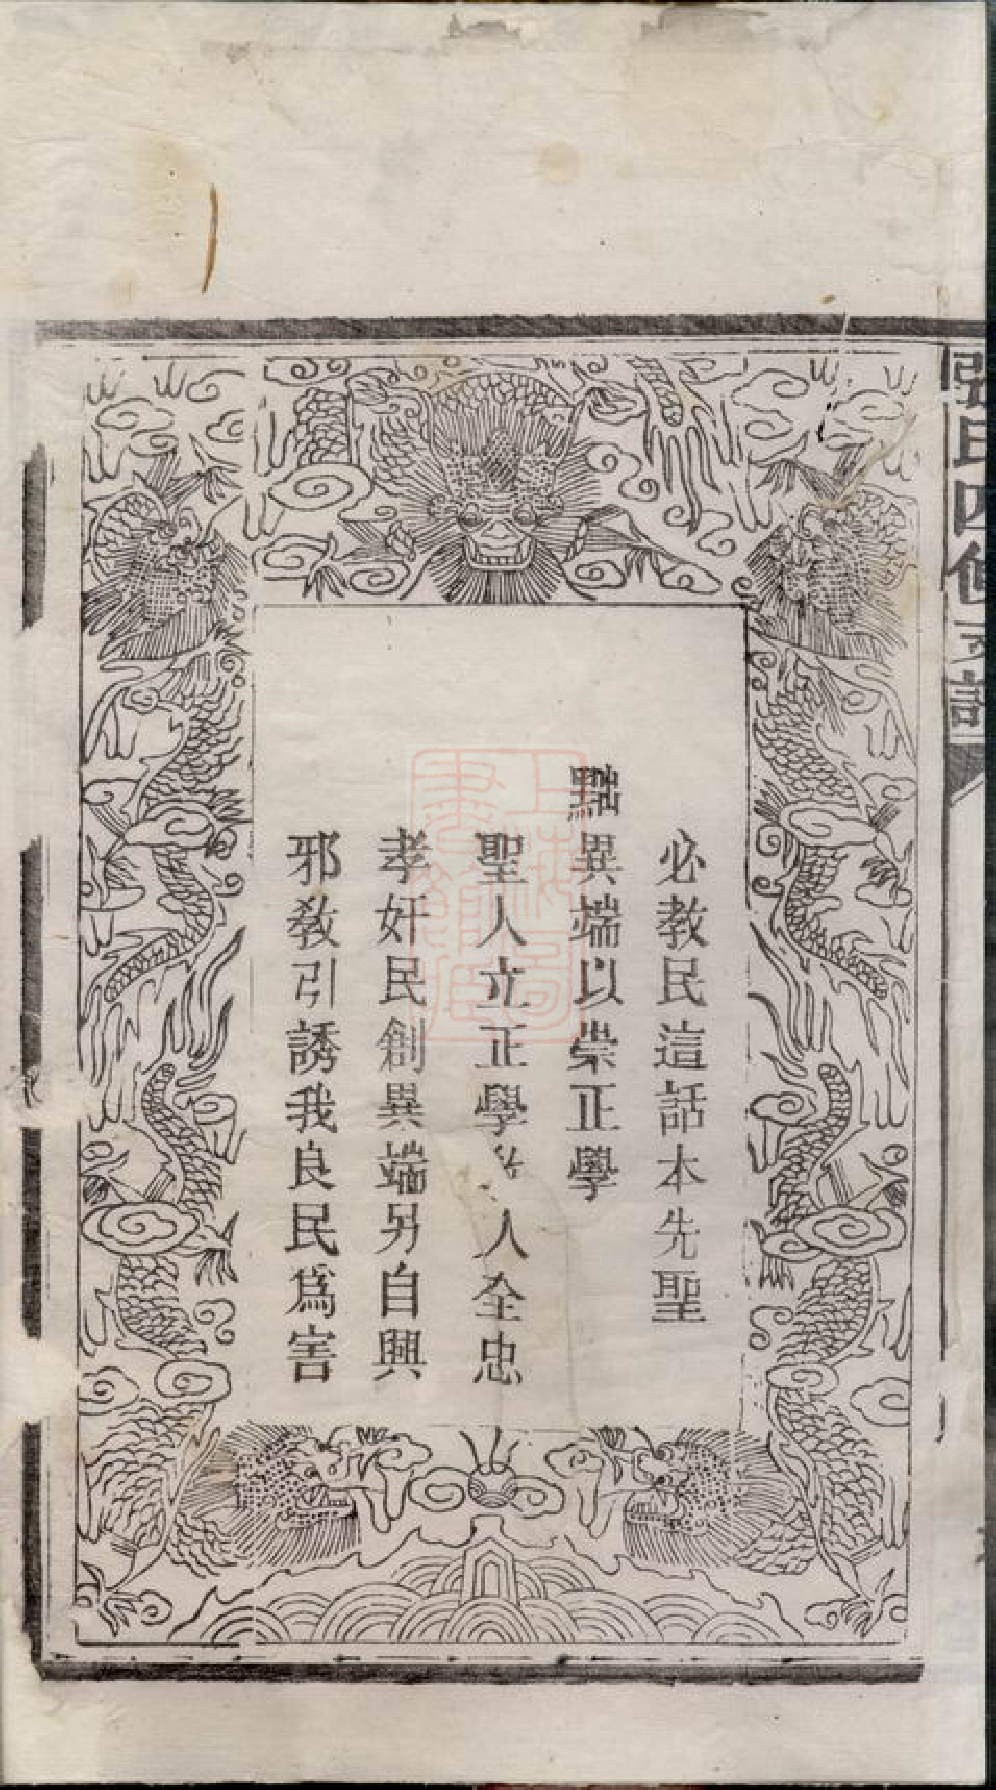 張氏四修支譜
必教民這話本先聖
黜異端以崇正學
聖人立正學教人全忠
孝奸民創異端另自興
邪教引誘我良民爲害